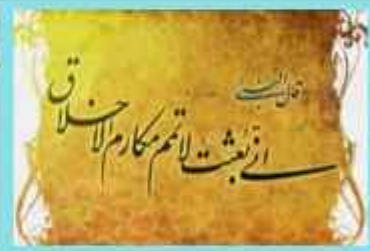 قال النبی
انی بعثت لاتمم مکارم الاخلاق